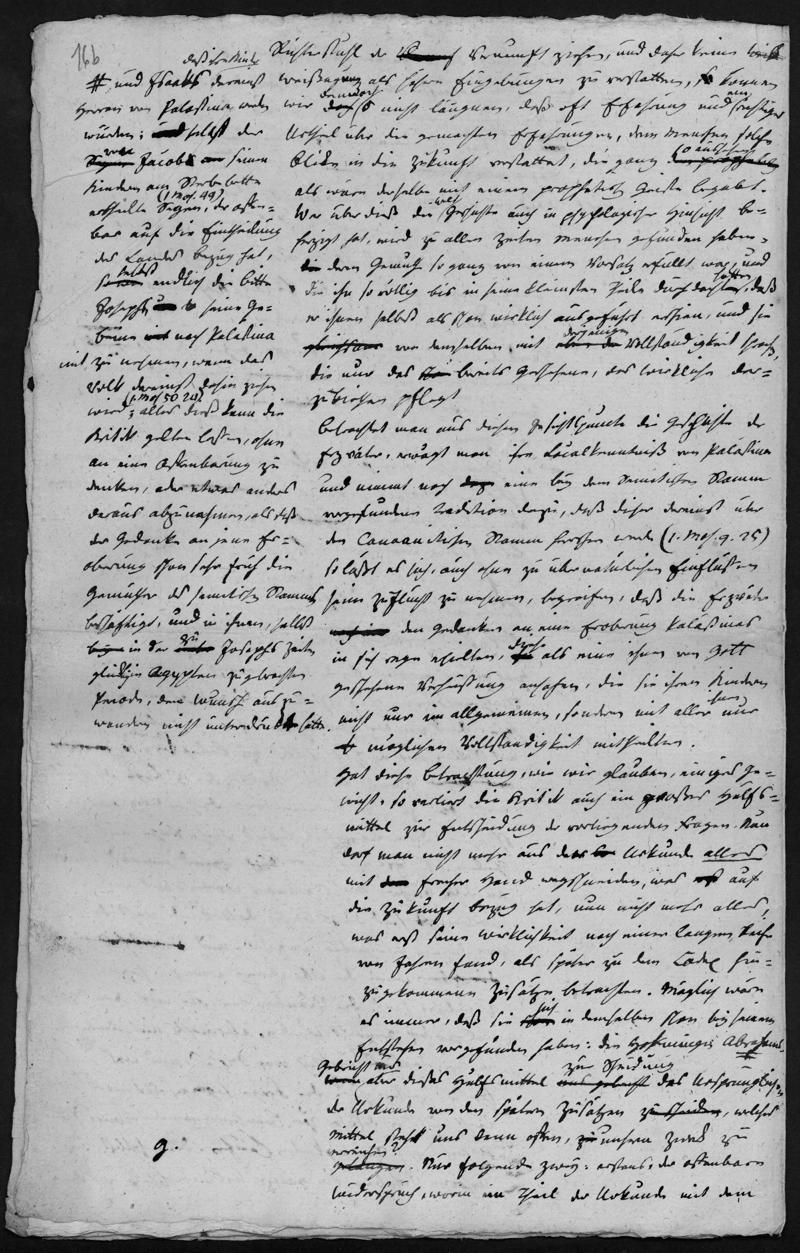 166
Richterstuhl der Vernunft ziehen, und daher keine
Weissagung als höhere Eingebungen zu verstatten, so können
wir dennoch nicht läugnen, daß oft Erfahrung und ein richtiges
Urtheil über die gemachten Erfahrungen, dem Menschen solche
Blicke in die Zukunft verstattet, die ganz so aussehen
als wären derselbe mit einem prophetischen Geiste begabt.
Wer über dieß die Geschichte auch in psychologischer Hinsicht be=
herzigt hat, wird zu allen Zeiten Menschen gefunden haben,
deren Gemüth so ganz von einem Vorsatz erfüllt war, und
die ihn so völlig bis in seine kleinsten Theile durchdacht hatten, daß
er ihnen selbst als schon wirklich ausgeführt erschien, und sie
von demselben mit derjenigen Vollständigkeit sprachen,
die nur das bereits Geschehene, das wirkliche dar=
zubiethen pflegt
Betrachtet man aus diesem Gesichtspuncte die Geschichte der
Erzväter, erwägt man ihre Localkenntniß von Palästina
und nimmt noch eine bey dem Semitischen Stamm
vorgefundene Tradition dazu, daß dieser dereinst über
den Canaanitischen Stamm herrschen werde (1. Mos. 9. 25)
so läßt es sich, auch ohne zu übernatürlichen Einflüssen
seine Zuflucht zu nehmen, begreifen, daß die Erzväter
den Gedanken an eine Eroberung Palästinas
in sich rege erhielten, als eine ihnen von Gott
geschehene Verheissung ansahen, die sie ihren Kindern
nicht nur im allgemeinen, sondern mit aller nur
möglichen Vollständigkeit mittheilten.
Hat diese Betrachtung, wie wir glauben, einiges Ge=
wicht, so verliert die Kritik auch ein großes Hülfs=
mittel zur Entscheidung der vorliegenden Fragen. Nun
darf man nicht mehr aus der Urkunde alles
mit frecher Hand wegschneiden, was auf
die Zukunft bezug hat, nun nicht mehr alles,
was erst seine Wirklichkeit nach einer langen Reihe
von Jahren fand, als später zu dem Codex hin=
zugekommene Zusätze betrachten. Möglich wäre
es immer, daß sie sich in demselben schon bey seinem
Entstehen vorgefunden haben: die Hofnungen Abrahams
#, und Isaaks dereinst
Herren von Palästina werden
würden; selbst der
von Jacob seinen
Kindern am Sterbebette
ertheilte Segen, (1 Mos. 49) der offen=
bar auf die Eintheilung
des Landes bezug hat,
selbst endlich die Bitte
Josephs seine Ge=
beine nach Palästina
mit zu nehmen, wenn das
Volk dereinst dahin ziehen
wird; (1. Mos 50 24) alles dieß kann die
Kritik gelten lassen, ohne
an eine Offenbarung zu
denken, oder etwas anders
daraus abzunehmen, als daß
der Gedanke an jene Er=
oberung schon sehr früh die
Gemüther des semitischen Stammes
beschäftigt, und in ihnen, selbst
in der zu Josephs Zeiten
glücklich Aegypten zugebrachten
Periode, den Wunsch auszu=
wandern nicht unterdrückt hatte.
Gebricht uns aber dieses Hülfsmittel zur Scheidung des Ursprünglichen
der Urkunde von den spätern Zusätzen, welches
Mittel steht uns denn offen, unsern Zweck zu
erreichen? Nur folgende zwey: erstens, der offenbare
Widerspruch, worin ein Theil der Urkunde mit dem
g.